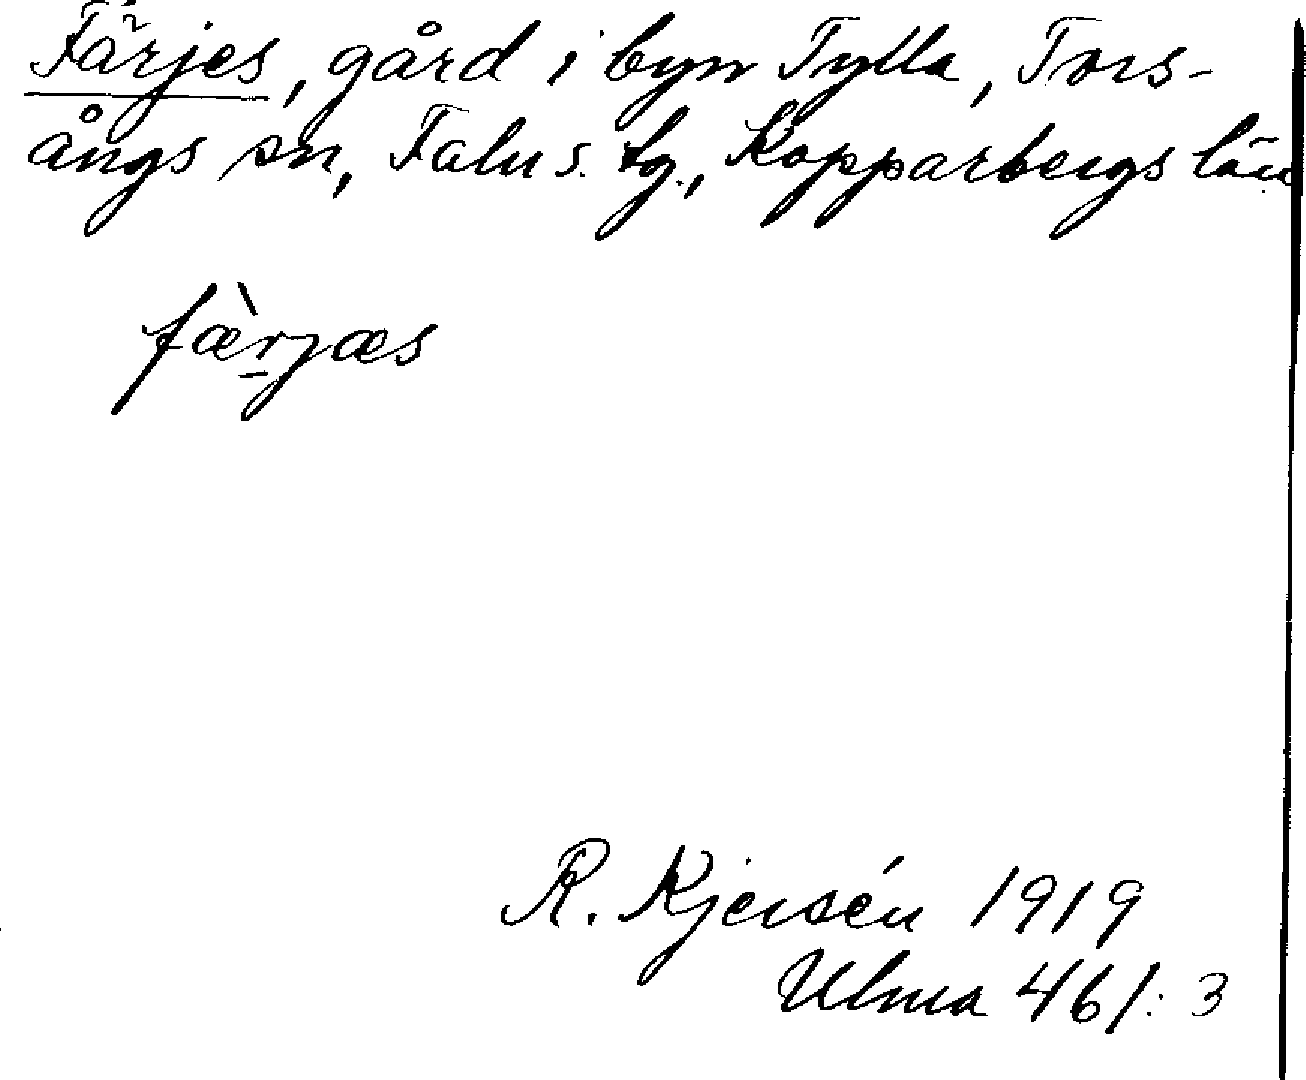 Färjes, gård i byn Tylla, Tors-
ångs sn, Falu s. tg., Kopparbergs län
fæ̀r̠jæs
R. Kjersén 1919
Ulma 461:3